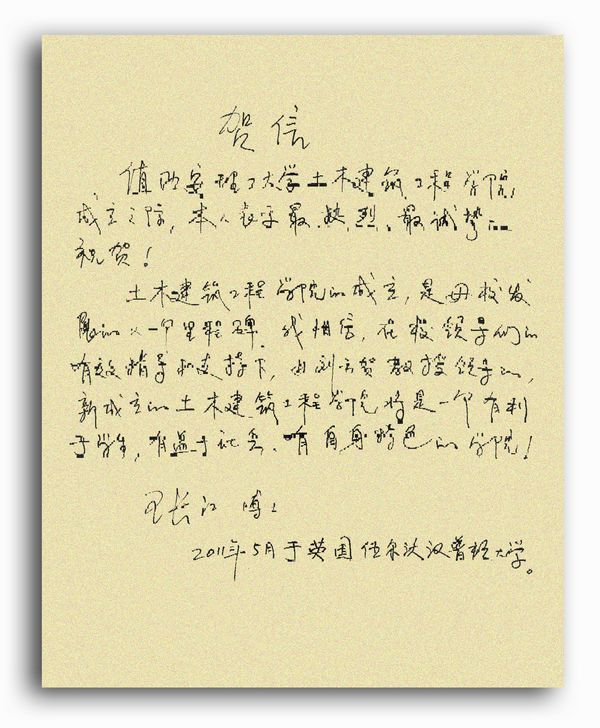 贺信
值西安理工大学土木建筑工程学院
成立之际，本人表示最热烈、最诚挚的
祝贺！
土木建筑工程学院的成立，是母校发
展的又一个里程碑。我相信，在校领导们的
有效指导和支持下，由刘云贺教授领导的，
新成立的土木建筑工程学院将是一个有利
于学生，有益于社会，有自身特色的学院！
长江 博士
2011年5月于英国伍尔沃汉普顿大学。